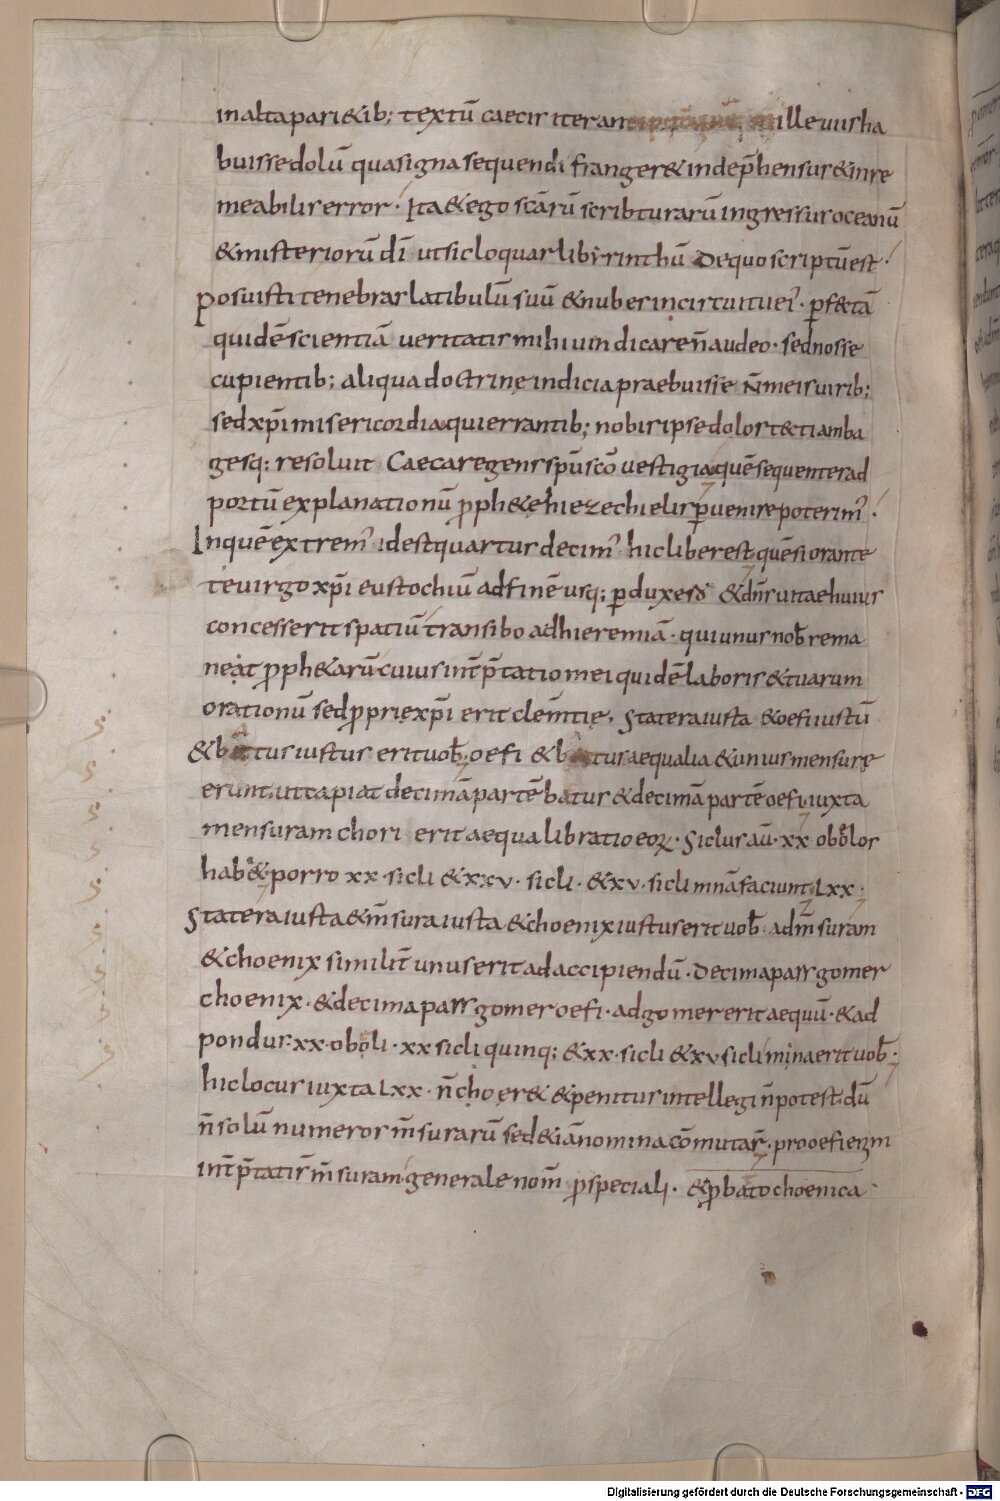 in alta pari&ib; textū caecis iter an mille uiis ha
buisse dolū qua signa sequendi franger& indep̄hensus & inre
meabilis error · Ita & ego scārū scribturarū ingressus oceanū
& misteriorū dī ut sic loquar libyrinthū De quo scriptū est·
Posuisti tenebras latibulū suū & nubes in circuitu ei᾽· ꝑf&tā
quidē scientiā ueritatis mihi uindicare n̄ audeo · sed nosse
cupientib; aliqua doctrinę indicia praebuisse N̄ meis uirib;
sed xp̄i misericordia qui errantib; nobis ipse dolos tecti amba
gesq; resoluit Caeca regens sp̄u scō uestigia quē sequentes ad
portū explanationū ꝓph&ę hiezechielis ꝑuenire poterim᾽·
In quē extrem᾽ id est quartus decim᾽ hic liber est quē si orante
te uirgo xp̄i eustochiū ad finē usq; ꝑduxero & dn̄s uitae huius
concesserit spatiū transibo ad hieremiā · qui unus nob̄ rema
neat ꝓph&arū cuius int̄p̄tatio mei quidē laboris & tuarum
orationū sed ꝓprię xp̄i erit clem̄tię, Statera iusta & oefi iustū
& batus iustus erit uob̄· oefi & batus aequalia & unius mensurę
erunt ut capiat decimā partē batus & decimā partē oefi, iuxta
mensuram chori erit aequa libratio eoꝝ· Siclus aū· xx obolos
hab& porro xx · sicli & xxv · sicli · & xv · sicli mnā faciunt, Lxx·
Statera iusta & m̄sura iusta & choenix iustus erit uob̄ ad m̄suram
& choenix similit̄ unus erit ad accipiendū · Decima pars gomer
choenix · & decima pars gomer oefi · ad gomer erit aequū · & ad
pondus xx · oboli · xx sicli quinq; & xx · sicli & xv sicli mina erit uob̄·
hic locus iuxta Lxx · n̄ choer& & penitus intellegi n̄ potest, dū
n̄ solū numeros m̄surarū sed & iā nomina cōmutās · pro oefi enim
int̄p̄tatis m̄suram generale nom̄ ꝓ speciali · & ꝓ bato choenica
Digitalisierung gefördert durch die Deutsche Forschungsgemeinschaft - DFG